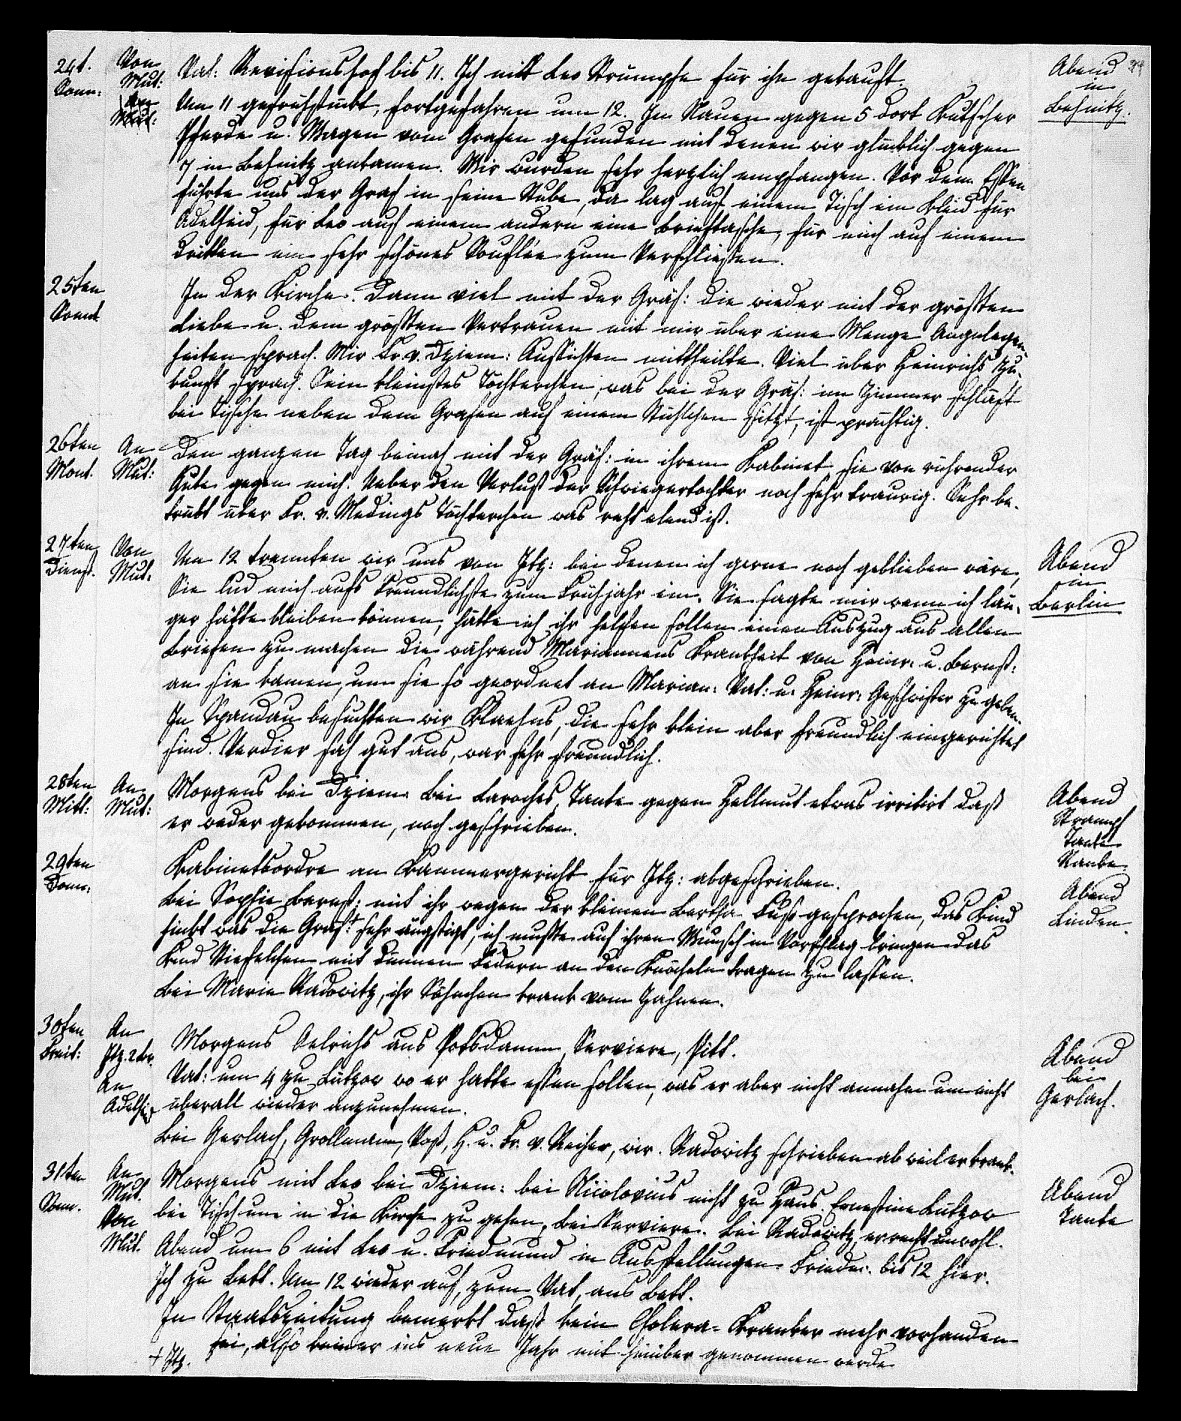 24t. Sonn: Von Mut: An Mut: Vat: Revisionshof bis 11. Ich mit Leo Strümpfe für ihn gekauft. Abend in Behnitz.
Um 11 gefrühstückt, fortgefahren um 12. In Nauen gegen 5 dort Kutscher
Pferde u. Wagen vom Grafen gefunden mit denen wir glücklich gegen
7 in Behnitz ankamen. Wir wurden sehr herzlich empfangen. Vor dem Essen
führte uns der Graf in seine Stube, da lag auf einem Tisch ein Kleid für
Adelheid, für Leo auf einem andern eine Brieftasche, für mich auf einem
dritten ein sehr schönes Souflée zum Verschließen.
25ten Sonnt In der Kirche. Dann viel mit der Gräf: die wieder mit der größten
Liebe u. dem größten Vertrauen mit mir über eine Menge Angelegen-
heiten sprach. Mir Fr. v. Dziem: Aussichten mittheilte. Viel über Heinrichs Zu-
kunft sprach. Sein kleinstes Töchterchen, was bei der Gräf: im Zimmer schläft
bei Tische neben dem Grafen auf einem Stühlchen sitzt, ist prächtig.
26ten Mont. An Mut: Den ganzen Tag beinah mit der Gräf: in ihrem Kabinet, sie von rührender
Güte gegen mich. Ueber den Verlust der Schwiegertochter noch sehr traurig. Sehr be-
trübt über Fr. v. Medings Töchterchen was recht elend ist.
27ten Dienst. Von Mut: Um 12 trennten wir uns von Itz: bei denen ich gerne noch geblieben wäre, Abend in Berlin
Sie lud mich aufs Freundlichste zum Frühjahr ein. Sie sagte mir wenn ich län-
ger hätte bleiben können, hätte ich ihr helfen sollen einen Auszug aus allen
Briefen zu machen die während Mariannens Krankheit von Heinr: u. Bernst:
an sie kamen, um sie so geordnet an Marian: Vat: u. Heinr: Geschwister zu geben.
In Spandau besuchten wir Klaehns, die sehr klein aber freundlich eingerichtet
sind. Verdier sah gut aus, war sehr freundlich.
28ten Mitt: An Mut: Morgens bei Dziem: Bei Laroches, Tante gegen Hellmut etwas irritirt daß Abend
er weder gekommen, noch geschrieben. Tante
29ten Donn: Kabinetsordre an Kammergericht für Itz: abgeschrieben. Abend Linden.
Bei Sophie Bernst: mit ihr wegen der kleinen Bertha Fuß gesprochen, das Kind
hinkt was die Gräf: sehr ängstigt, ich mußte auf ihren Wunsch in Vorschlag bringen das
Kind Stiefelchen mit dünnen Federn an den Knöcheln tragen zu lassen.
Bei Marie Radowitz, ihr Söhnchen krank vom Zahnen.
30ten Freit: An Itz. An Adelheid Morgens Oelrichs aus Potsdamm, Serviere, Pitt. Abend bei Gerlach.
Vat: um 4 zu Lützow wo er hatte essen sollen, was er aber nicht annahm um nicht
überall wieder anzunehmen.
Bei Gerlach, Grollmann, Voß, H. u. Fr. v. Reiher, wir. Radowitz schrieben ab weil er krank.
31ten Sonn. An Mut. Von Mut. Morgens mit Leo bei Dziem: bei Nicolovius nicht zu Haus. Ernestine Lützow Abend Tante
bei Tisch um in die Kirche zu gehen. Bei Serviere. Bei Radowitz, er recht unwohl.
Abend um 6 mit Leo u. Friedmund in Ausstellungen Friedm: bis 12 hier.
Ich zu Bett. Um 12 wieder auf, zum Vat, aus Bett.
In Staatszeitung bemerkt daß kein Cholera-Kranker mehr vorhanden
sei, also keiner ins neue Jahr mit hinüber genommen werde
+ Itz.